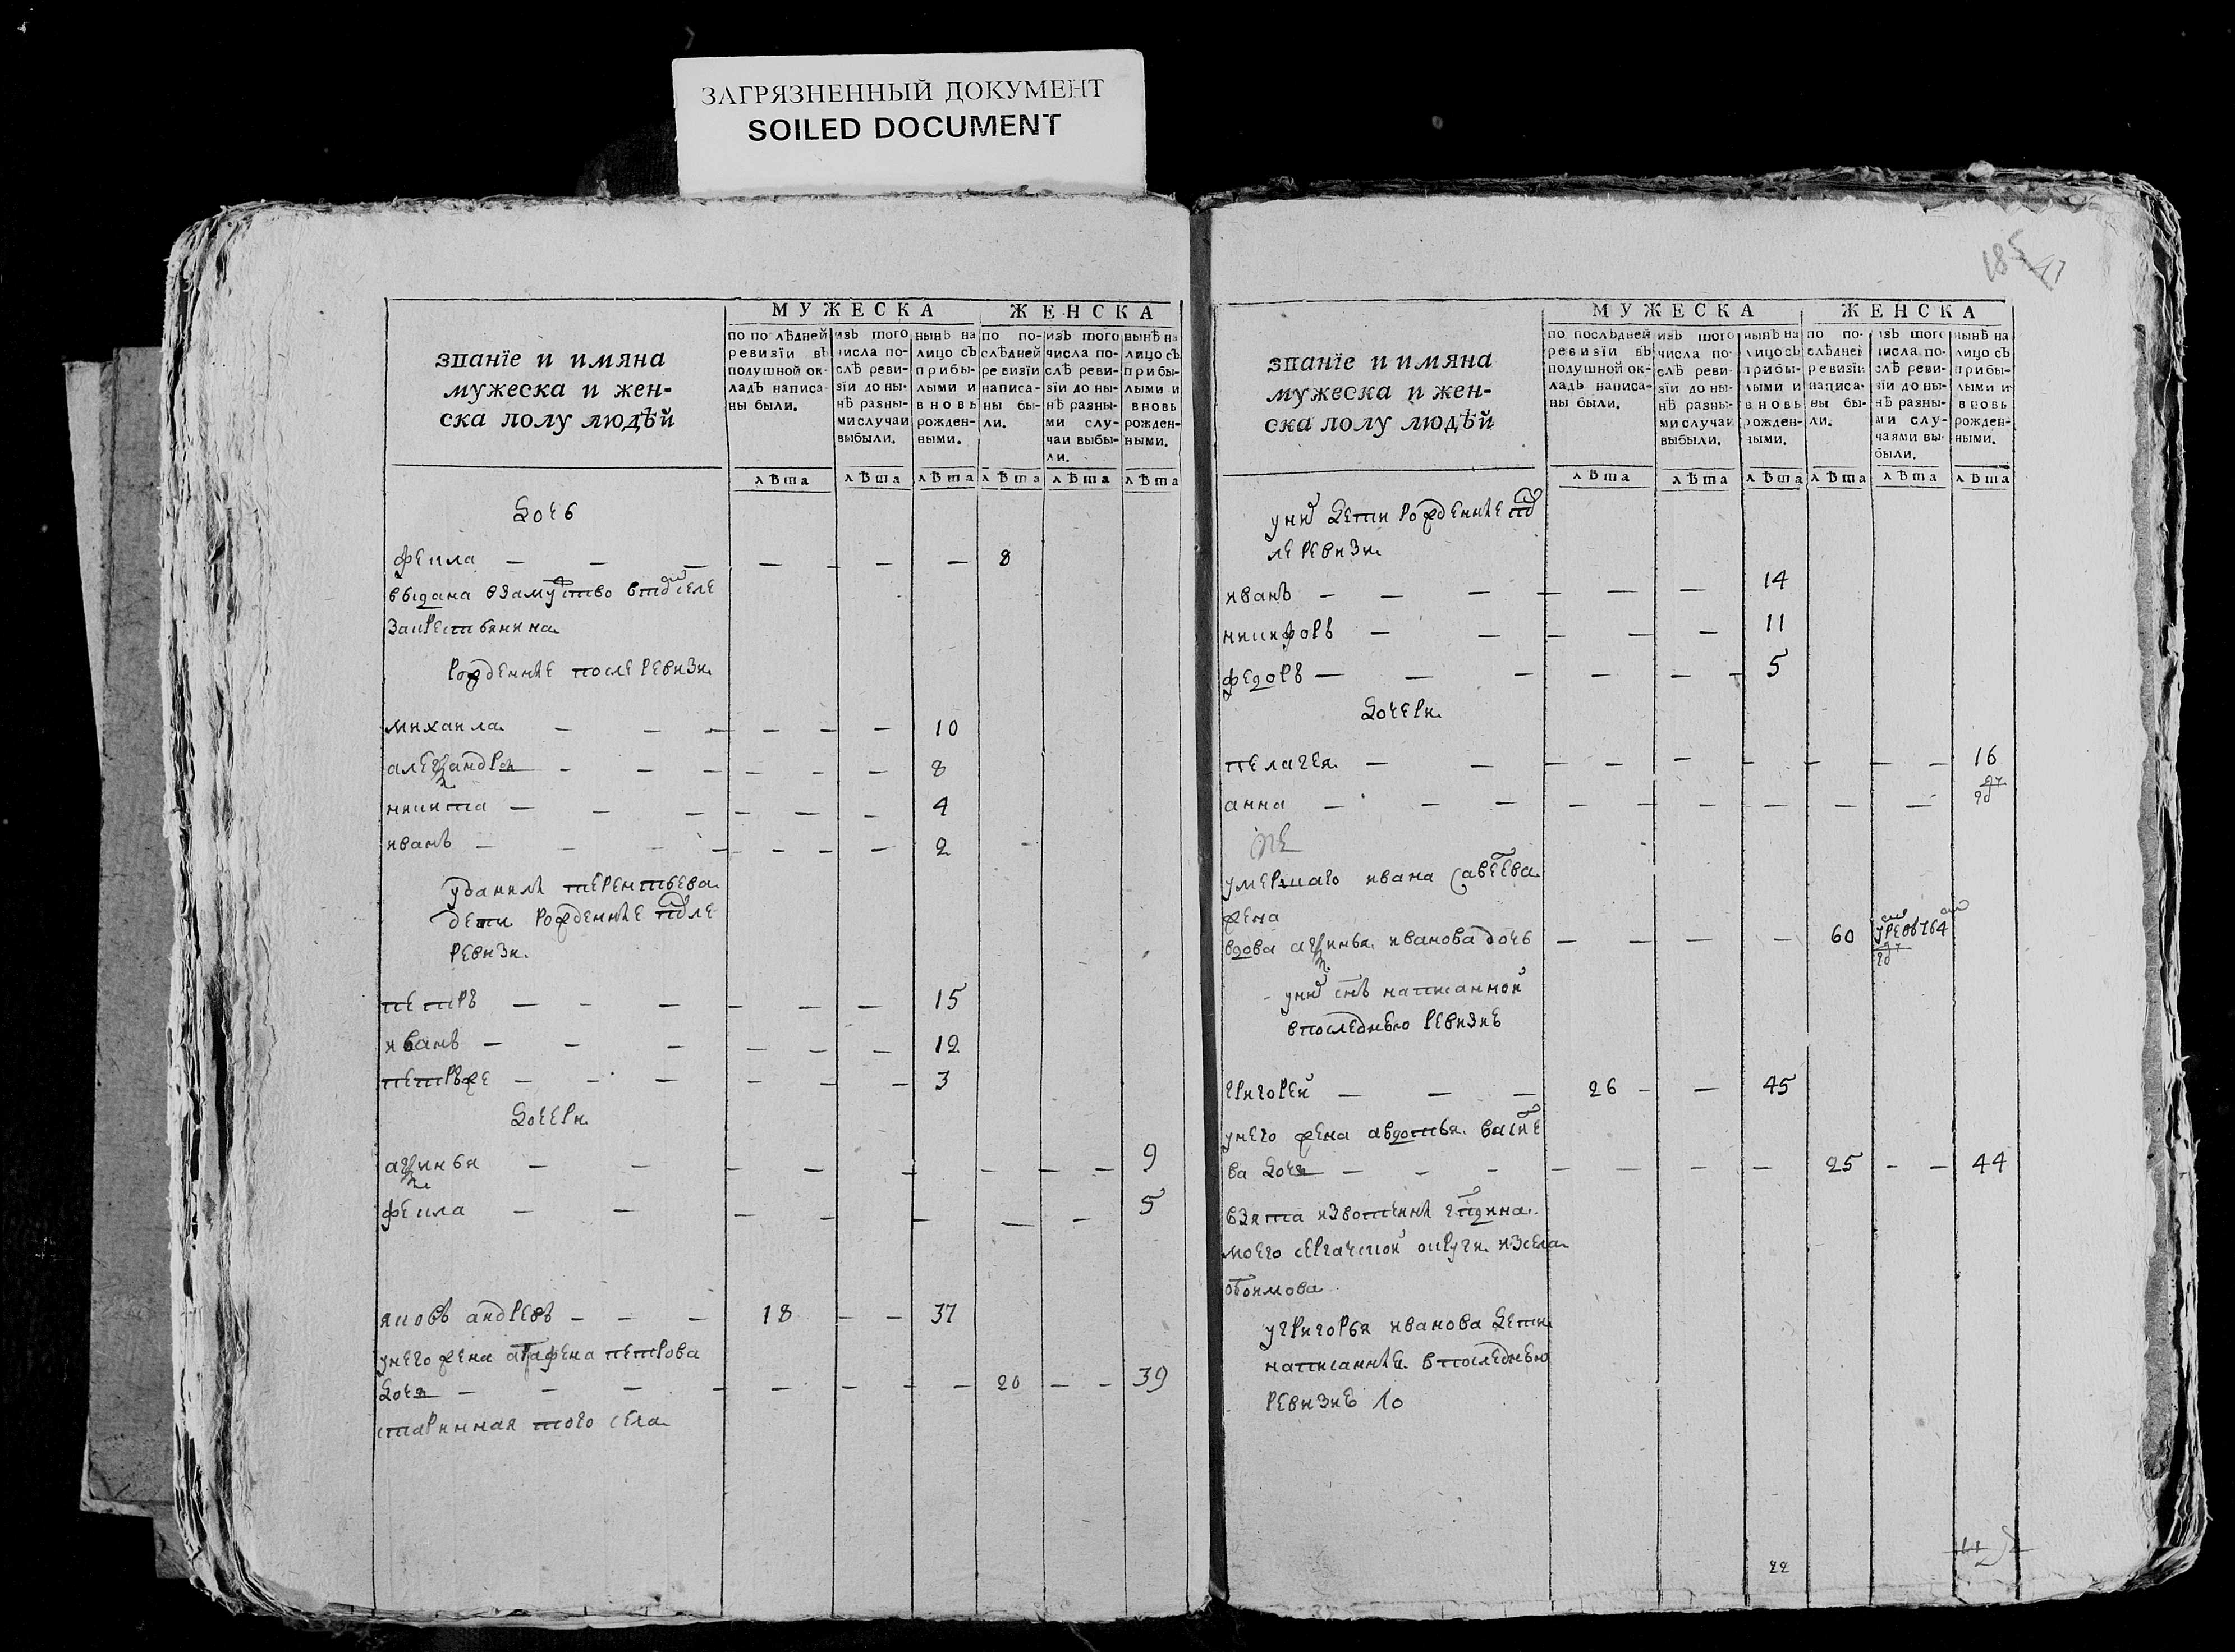 ЗАГРЯЗНЕННЫЙ ДОКУМЕНТ
SOILED DOCUMENT
званїе и имяна
мужеска и жен-
ска полу людѣй
МУЖЕСКА
ЖЕНСКА
по по лѣдней
ревизїи въ
подушной ок-
ладъ написа-
ны были.
изъ того
числа по-
слѣ реви-
зїи до ны-
нѣ разны-
ми случаи
выбыли.
нынѣ на
лицо съ
прибы-
лыми и
вновь
рожден-
ными.
по по-
слѣдней
ревизїи
написа-
ны бы-
ли.
изъ того
числа по-
слѣ реви-
зїи до ны-
нѣ разны-
ми слу-
чаи выбы-
ли.
нынѣ на
лицо съ
прибы-
лыми и
вновь
рожден-
ными.
лѣта лѣта лѣта лѣта лѣта лѣта
дочь
фекла — — — — — — — 8
выдана взамужство
закрестьянина
рожденные после ревизи
михаила — — — — — — 10
александръ — — — — — — 8
никита — — — — — — 4
иванъ — — — — — — 2
уданилы терентьева
дети рожденные после
ревизи
петръ — — — — — — 15
иванъ — — — — — — 12
петръже — — — — — — 3
дочери
аксинья — — — — — — — — 9
фекла — — — — — — — 5
яковъ андреевъ — — — 18 — — 37
унего жена аграфена петрова
дочь — — — — — — — — 20 — — 39
старинная того села
185
званїе и имяна
мужеска и жен-
ска полу людѣй
МУЖЕСКА
ЖЕНСКА
по послѣдней
ревизїи въ
подушной ок-
ладъ написа-
ны были.
изъ того
числа по-
слѣ реви-
зїи до ны-
нѣ разны-
ми случаи
выбыли.
нынѣ на
лицо съ
прибы-
лыми и
вновь
рожден-
ными.
по по-
слѣдней
ревизїи
написа-
ны бы-
ли.
изъ того
числа по-
слѣ реви-
зїи до ны-
нѣ разны-
ми слу-
чаями вы-
были.
нынѣ на
лицо съ
прибы-
лыми и
вновь
рожден-
ными.
лѣта лѣта лѣта лѣта лѣта лѣта
уних дети рожденные пос
ле ревизи
иванъ — — — — — — 14
никифоръ — — — — — 11
федоръ — — — — — — 5
дочери
пелагея — — — — — — — — — 16
анна — — — — — — — — —
умершаго ивана савеева
жена
вдова аксинья иванова дочь — — — — 60
уних сынъ написанной
впоследнею ревизиѣ
григорей — — — 26 — — 45
унего жена авдотья
ва дочь — — — — — — — 25 — — 44
взята извотчинны
моего сергачской округи изсела
угригорья иванова дети
написанные впоследнею
ревизиѣ
22